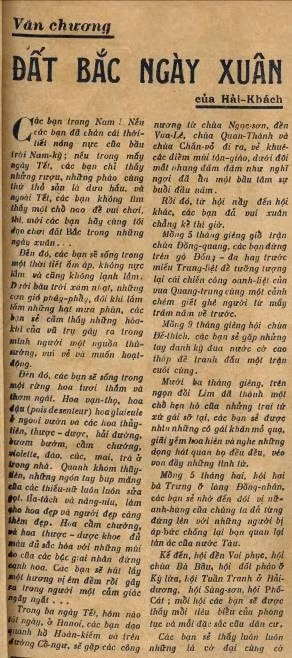 Văn chương
ĐẤT BẮC NGÀY XUÂN
của Hải-Khách
Các bạn trong Nam ! Nếu
các bạn đã chán cái thời-
tiết nóng nực của bầu
trời Nam-kỳ ; nếu trong mấy
ngày Tết, các bạn chỉ thấy
những rượu, những pháo cùng
thứ thổ sản là dưa hấu, và
ngoài Tết, các bạn không tìm
thấy một chỗ nào để vui chơi,
thì, mời các bạn hãy cùng tôi
dạo chơi đất Bắc trong những
ngày xuân...
Đến đó, các bạn sẽ sống trong
một thời tiết ấm áp, không nực
lắm và cũng không lạnh lắm.
Dưới bầu trời xám nhạt, những
cơn gió phảy-phảy, đôi khi lấm
tấm những hạt mưa phùn, các
bạn sẽ cảm thấy những hòa-
khí của vũ trụ gây ra trong
mình người một nguồn thú-
sướng, vui vẻ và muốn hoạt-
động.
Đến đó, các bạn sẽ sống trong
một rừng hoa tươi thắm và
thơm ngát. Hoa vạn-thọ, hoa
đậu (pois de senteur) hoa glaïeule
ở ngoài vườn và các hoa thủy-
tiên, thược - dược, hải đường,
bươm bướm, cẩm chướng,
violette, đào, cúc, mai, trà ở
trong nhà. Quanh khóm thủy-
tiên, những ngón tay búp măng
của các thiếu-nữ luôn luôn sửa
gọt, tỉa-tách và nâng-niu, làm
cho hoa đẹp và người đẹp càng
thêm đẹp. Hoa cẩm chướng,
và hoa thược - dược khoe đủ
màu đủ sắc hòa với những màu
áo của các bực gái nhàn đứng
cạnh hoa. Các bạn sẽ hút lấy
một hương vị êm đềm rồi gây
ra trong người một cảm giác
ngây ngất...
Trong ba ngày Tết, hôm nào
tốt ngày, ở Hanoi, các bạn dạo
quanh hồ Hoàn-kiếm và trên
đường Cổ-ngư, sẽ gặp các công
nương từ chùa Ngọc-sơn, đền
Vua-Lê, chùa Quan-Thánh và
chùa Chấn-võ đi ra, vẻ khuê-
các điểm mùi tôn-giáo, dưới đôi
mắt nhung đăm đăm như nghĩ
ngợi đã ẩn một bầu tâm sự
buổi đầu năm.
Rồi đó, từ hội này đến hội
khác, các bạn đủ vui xuân
chẳng kể thì giờ.
Mồng 5 tháng giêng giỗ trận
chùa Đồng-quang, các bạn đứng
trên gò Đống - đa hay trước
miếu Trung-liệt để tưởng tượng
lại cái chiến công oanh-liệt của
vua Quang-trung cùng một cảnh
chém giết ghê người từ mấy
trăm năm về trước.
Mồng 9 tháng giêng hội chùa
Đế-thích, các bạn sẽ gặp những
tay danh kỳ đua nước cờ cao
thấp để tranh đấu một trận
cuối cùng.
Mười ba tháng giêng, trên
ngọn đồi Lim đã thành một
chỗ hẹn hò của những trai tứ
xứ gái sở tại, các bạn sẽ được
nhìn những cô gái khăn mỏ quạ,
giải yếm hoa hiên và nghe những
giọng hát quan họ đều đều, véo-
von đầy những tình tứ.
Mồng 5 tháng hai, hội hai
bà Trưng ở làng Đồng-nhân,
các bạn sẽ nhớ đến đôi vị nữ-
anh-hùng của chúng ta đã từng
đứng lên với những người bị
áp-bức chống lại bọn quan lại
tàn ác của nước Tàu.
Kế đến, hội đền Voi phục, hội
chùa Bà Đầu, hội đốt pháo ở
Kỳ lừa, hội Tuần Tranh ở Hải-
dương, hội Sùng-sơn, hội Phổ-
Cát ; mỗi hội các bạn sẽ được
thấy mỗi tiêu biểu của phong
tục và mỗi đặc sắc của dân cư.
Các bạn sẽ thấy luôn luôn
những lá cờ đại cùng cờ